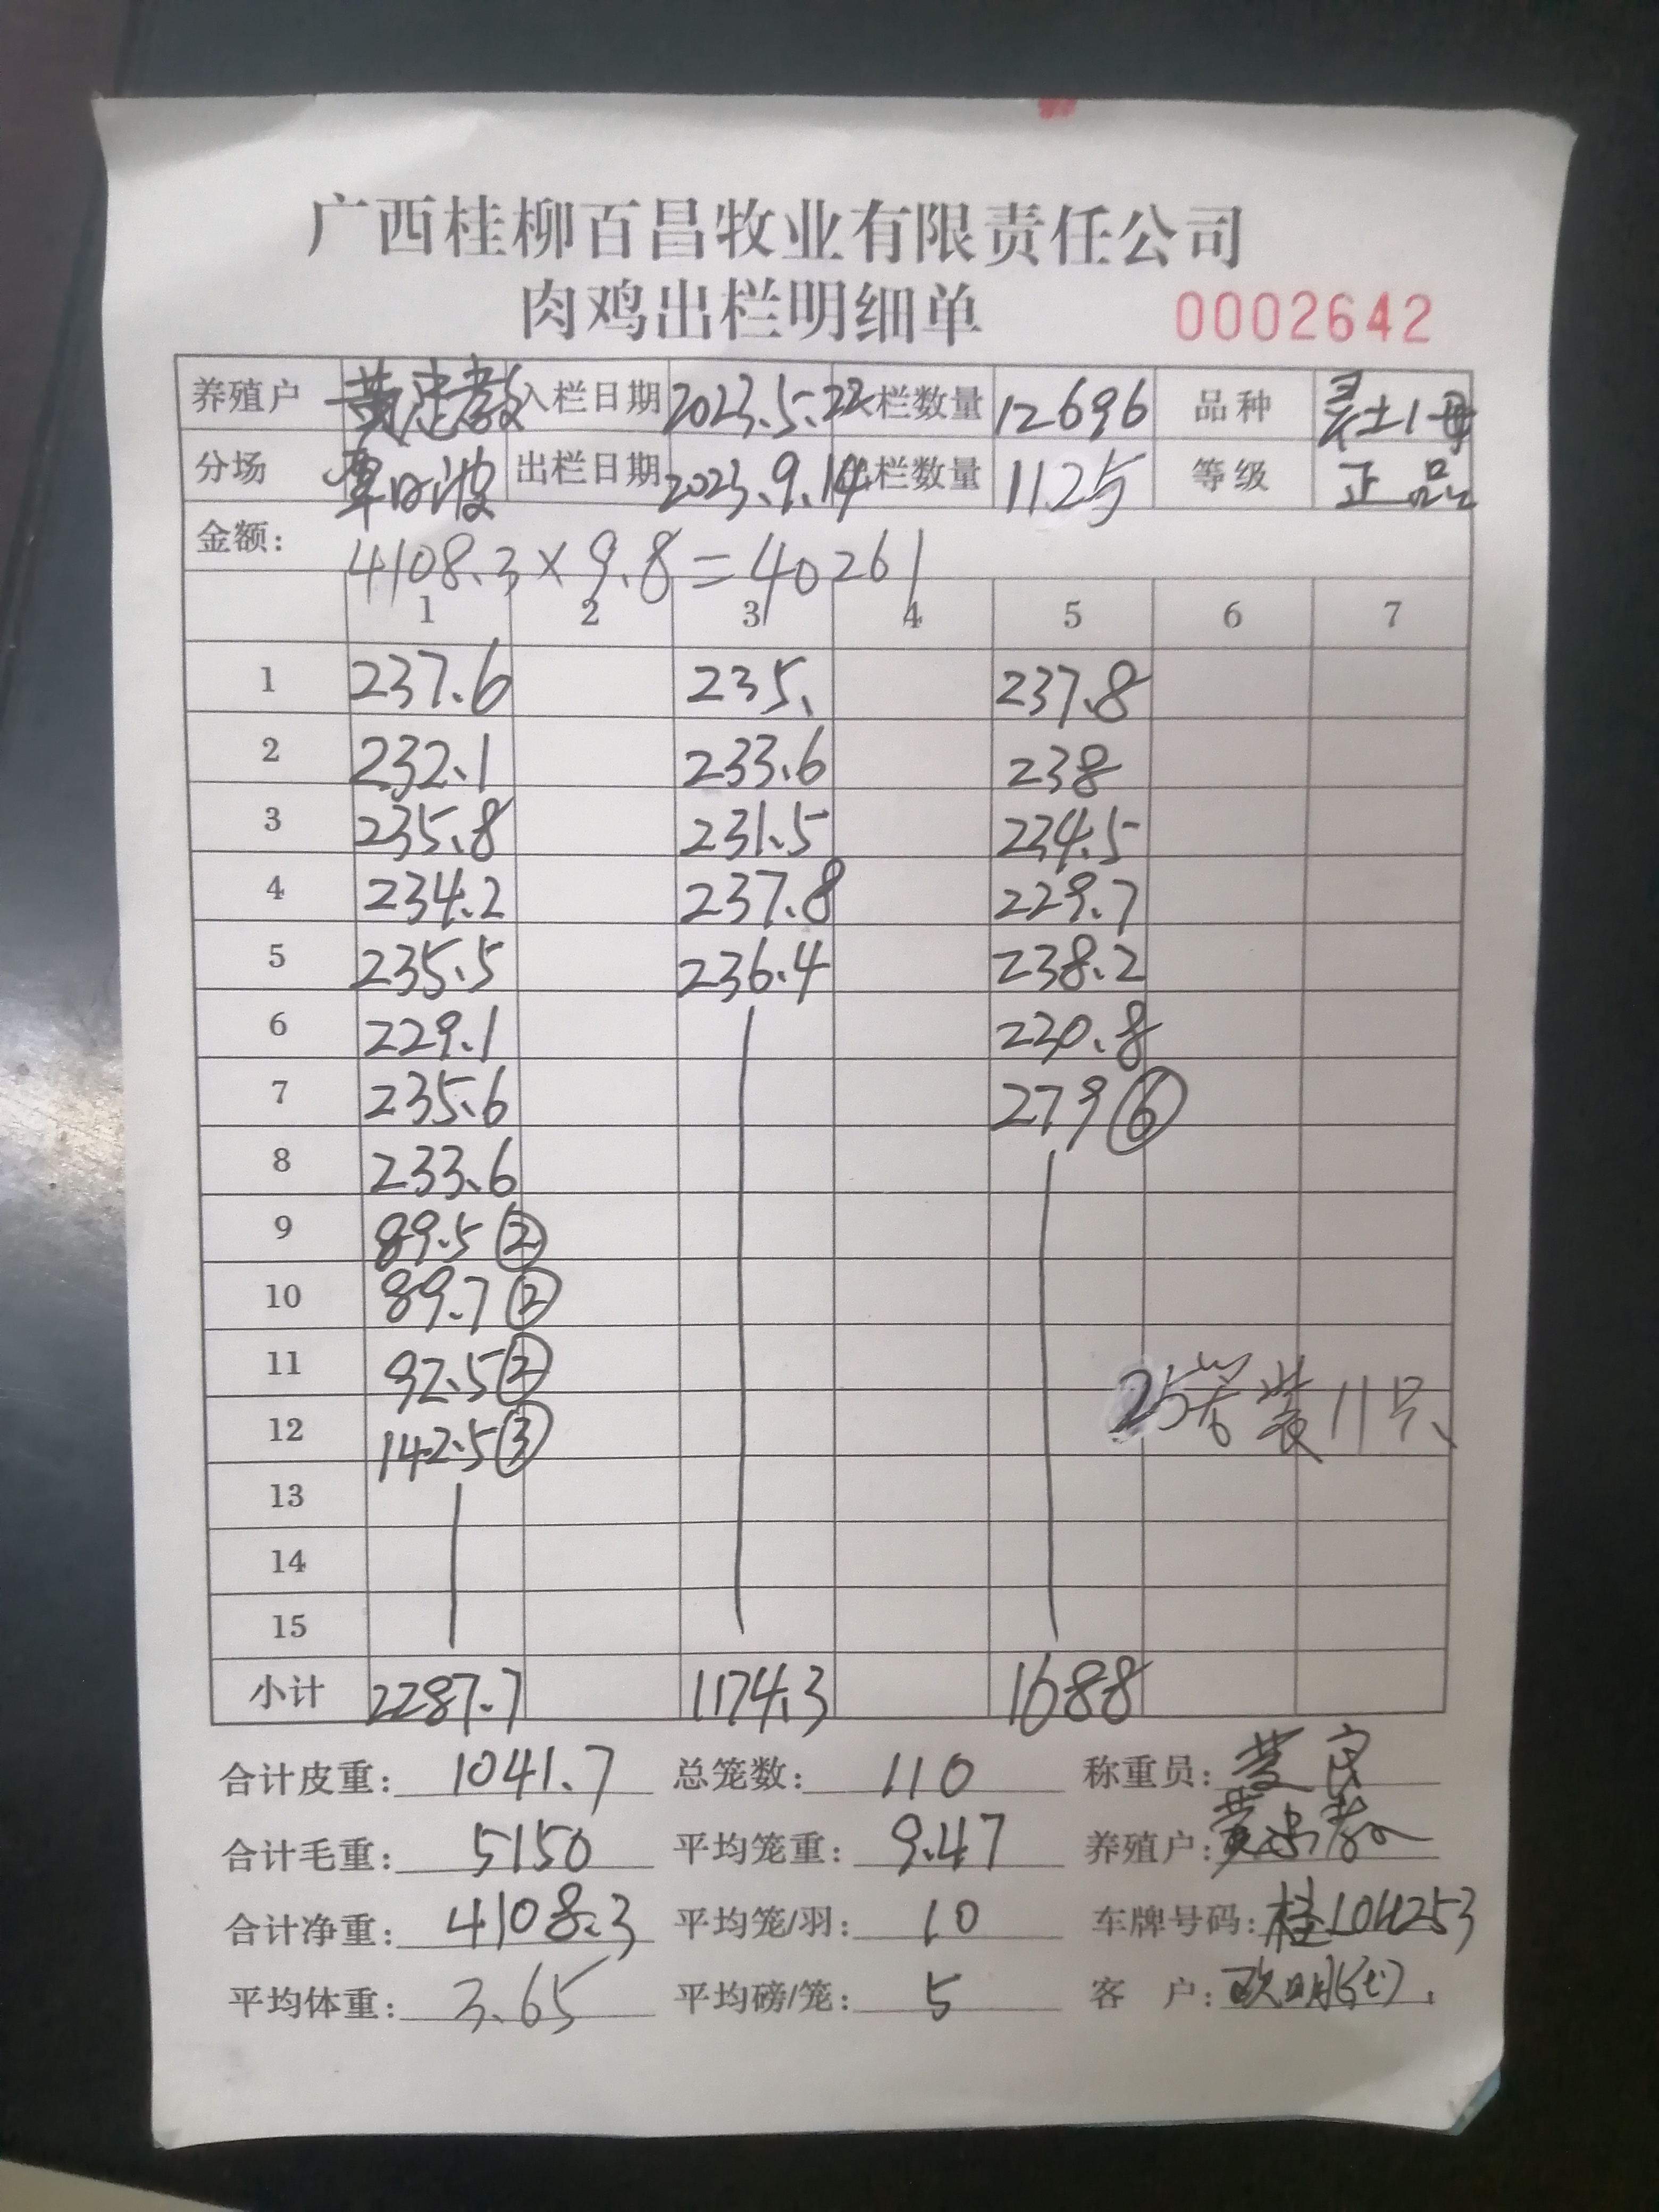 广西桂柳百昌牧业有限责任公司
肉鸡出栏明细单 0002642
养殖户 黄忠教 入栏日期 2023.5.22 栏数量 12696 品种 土1母
分场 覃日波 出栏日期 2023.9.14 栏数量 1125 等级 正品
金额: 4108.3×9.8=40261
1 2 3 4 5 6 7
1 237.6 235. 237.8
2 232.1 233.6 238
3 235.8 231.5 234.5
4 234.2 237.8 229.7
5 235.5 236.4 238.2
6 229.1 230.8
7 235.6 279⑥
8 233.6
9 89.5②
10 89.7②
11 92.5②
12 142.5③ 25笼装11只
13
14
15
小计 2287.7 1174.3 1688
合计皮重: 1041.7 总笼数: 110 称重员:
合计毛重: 5150 平均笼重: 9.47 养殖户: 黄忠教
合计净重: 4108.3 平均笼/羽: 10 车牌号码: 桂L04253
平均体重: 3.65 平均磅/笼: 5 客 户: 欧明